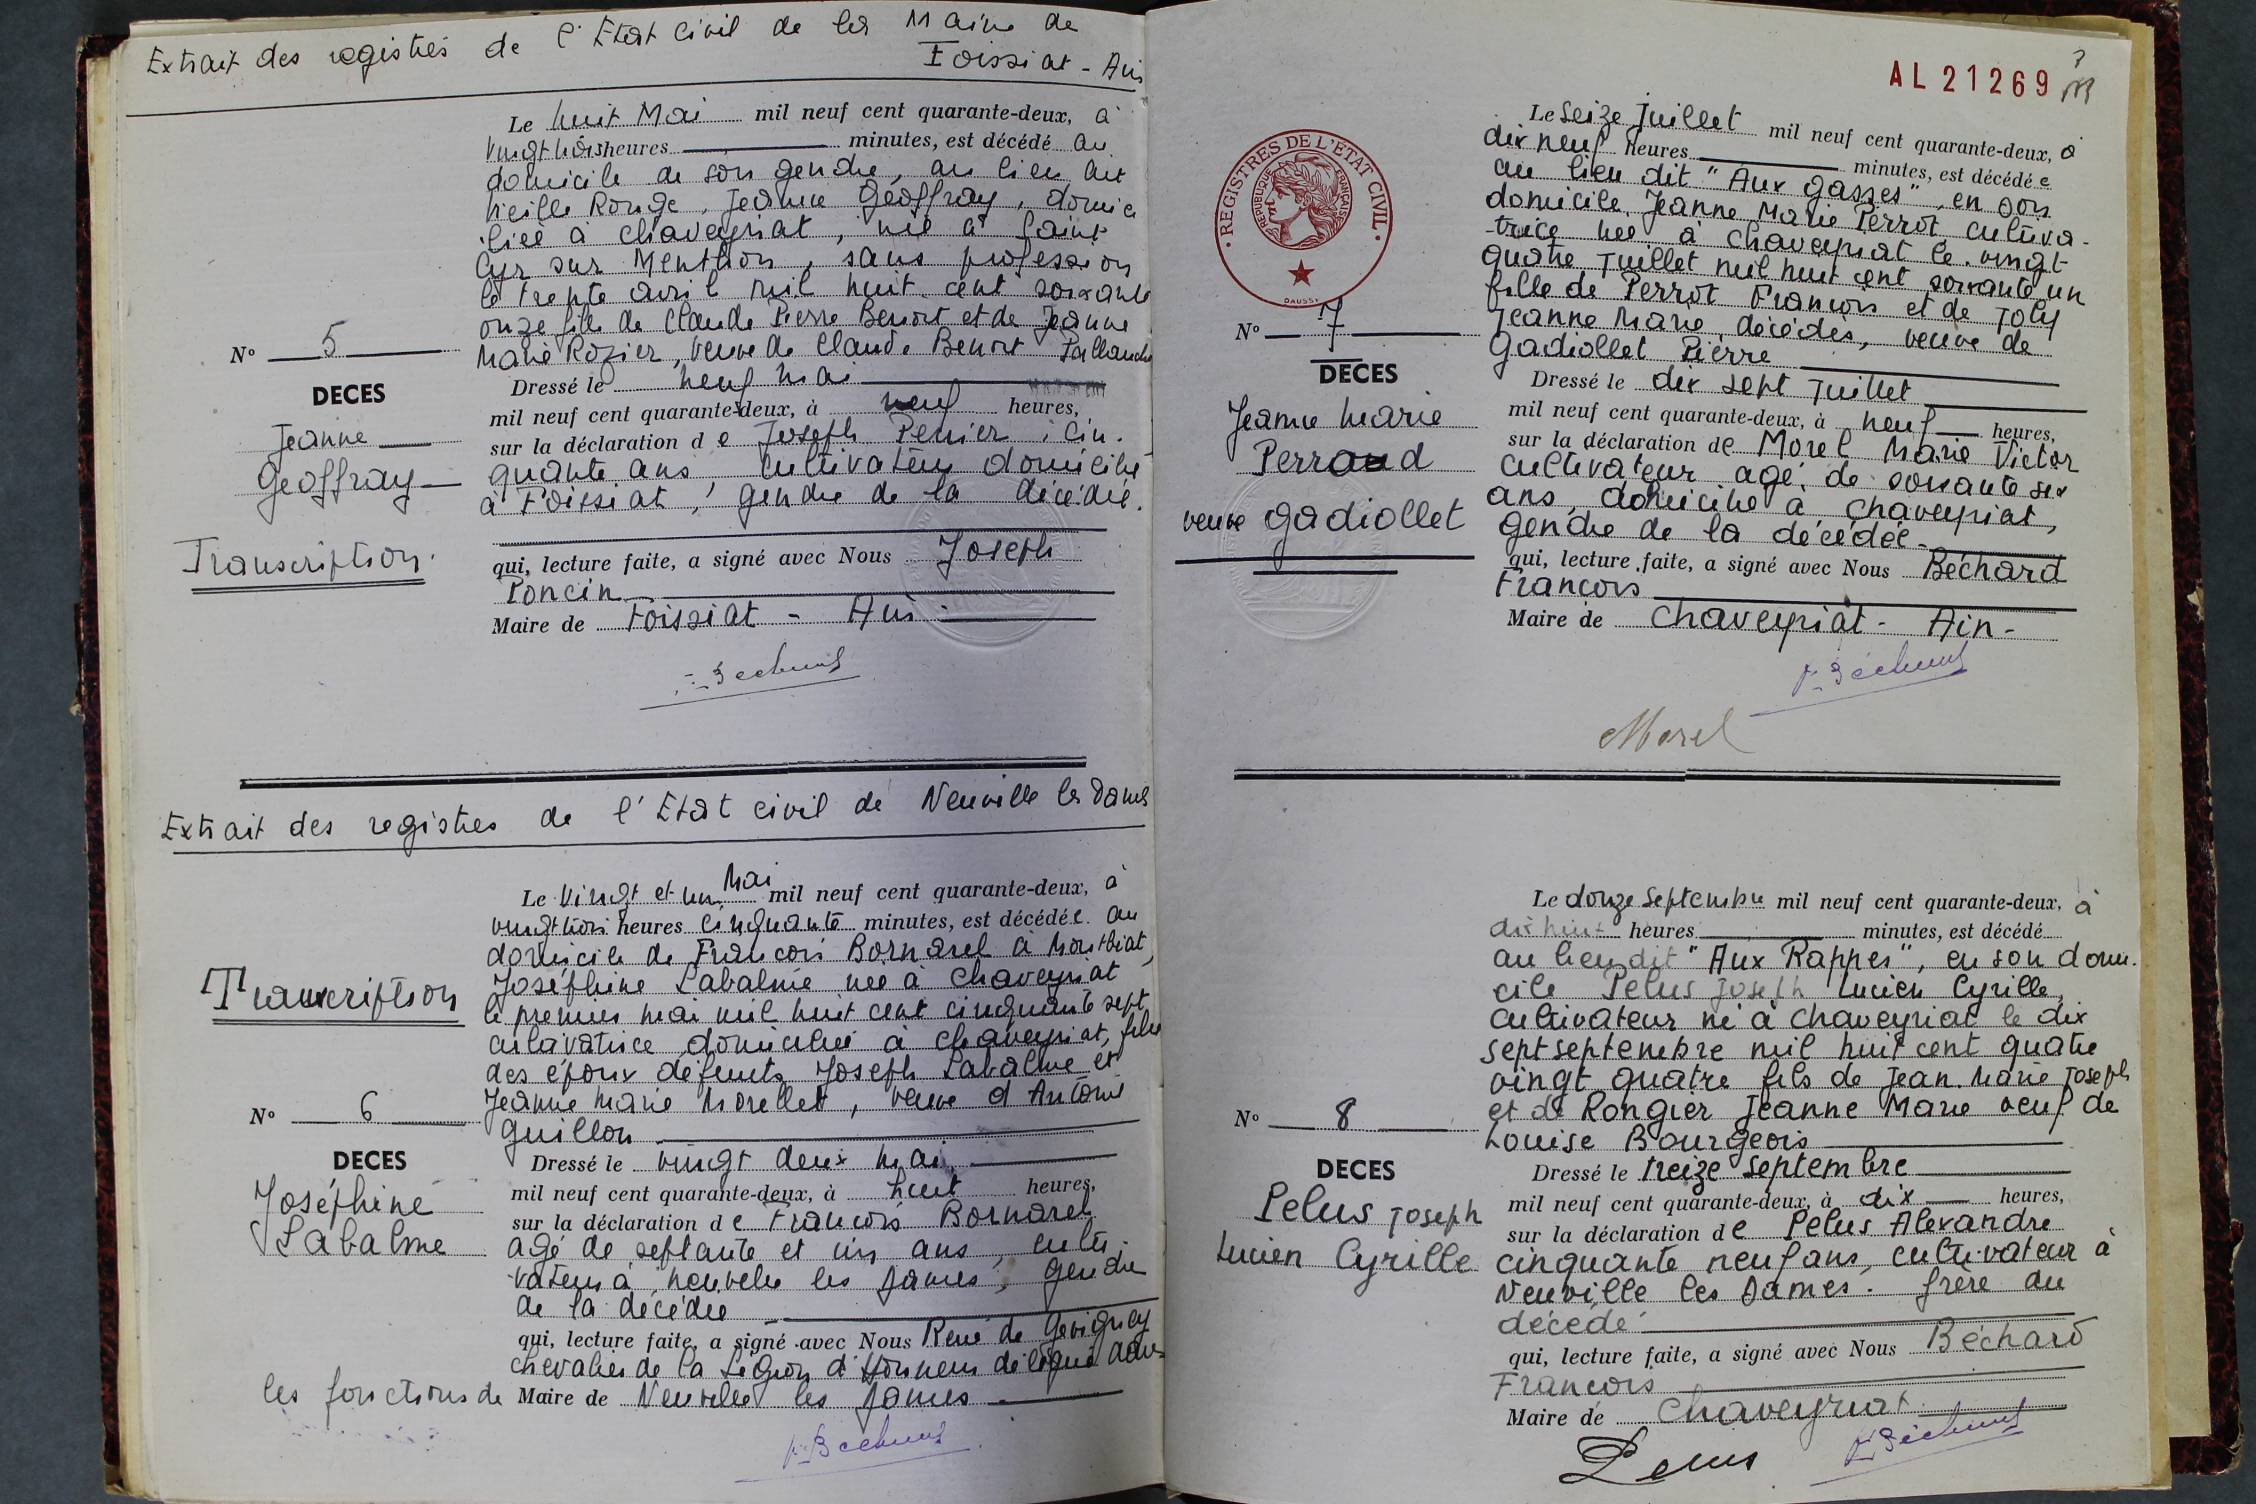 Extrait des registres de l'Etat Civil de la Mairie de
Foissiat - Ain
Le huit Mai mil neuf cent quarante-deux, à
vingt trois heures minutes, est décédé au
domicile de son gendre, au lieu dit
vieille Rouge, Jeanne Géoffray, domici
liée à Chaveyriat, née à Saint
Cyr sur Menthon, sans profession
le trente avril mil huit cent soixante
onze fille de Claude Pierre Benoit et de Jeanne
Marie Rozier, veuve de Claude Benoit
N° 5
DECES
Jeanne
Geoffray
Transcription.
Dressé le neuf mai
mil neuf cent quarante-deux, à neuf heures,
sur la déclaration de Joseph Perrier, cin-
quante ans, cultivateur domicilié
à Foissiat, gendre de la décédée.
qui, lecture faite, a signé avec Nous Joseph
Poncin
Maire de Foissiat - Ain
F. Béchard
Extrait des registres de l'Etat civil de Neuville les Dames
Le vingt et un Mai mil neuf cent quarante-deux, à
vingt trois heures cinquante minutes, est décédée au
domicile de François Bornarel à Montbiat,
Joséphine Labalme née à Chaveyriat
le premier mai mil huit cent cinquante sept
cultivatrice domiciliée à Chaveyriat, fille
des époux défunts Joseph Labalme et
Jeanne Marie Morellet, veuve d'Antoine
Guillon
Transcription
N° 6
DECES
Joséphine
Labalme
Dressé le vingt deux mai
mil neuf cent quarante-deux, à huit heures,
sur la déclaration de François Bornarel
agé de septante et un ans, culti-
vateur à Neuville les Dames, gendre
de la décédée
qui, lecture faite, a signé avec Nous René de Gevigney
chevalier de la Légion d'Honneur délégué dans
les fonctions de Maire de Neuville les Dames
F. Béchard
AL 21269
REGISTRES DE L'ETAT CIVIL
REPUBLIQUE FRANÇAISE
DAUSSY
Le Seize Juillet mil neuf cent quarante-deux, à
dix neuf heures minutes, est décédée
au lieu dit "Aux Gasses", en son
domicile, Jeanne Marie Perrot cultiva-
trice née à Chaveyriat le vingt
quatre Juillet mil huit cent soixante un
fille de Perrot François et de Joly
Jeanne Marie, décédés, veuve de
Gadiollet Pierre
N° 7
DECES
Jeanne Marie
Perraud
veuve Gadiollet
Dressé le dix sept Juillet
mil neuf cent quarante-deux, à neuf heures,
sur la déclaration de Morel Marie Victor
cultivateur agé de soixante six
ans, domicilié à Chaveyriat,
gendre de la décédée
qui, lecture faite, a signé avec Nous Béchard
François
Maire de Chaveyriat - Ain -
F. Béchard
Morel
Le douze Septembre mil neuf cent quarante-deux, à
dix huit heures minutes, est décédé
au lieu dit "Aux Rappes", en son domi-
cile Pelus Joseph Lucien Cyrille,
cultivateur né à Chaveyriat le dix
sept septembre mil huit cent quatre
vingt quatre fils de Jean Marie Joseph
et de Rongier Jeanne Marie veuf de
Louise Bourgeois
N° 8
DECES
Pelus Joseph
Lucien Cyrille
Dressé le treize Septembre
mil neuf cent quarante-deux, à dix heures,
sur la déclaration de Pelus Alexandre
cinquante neuf ans, cultivateur à
Neuville les Dames. frère du
décédé
qui, lecture faite, a signé avec Nous Béchard
François
Maire de Chaveyriat
F. Béchard
Pelus